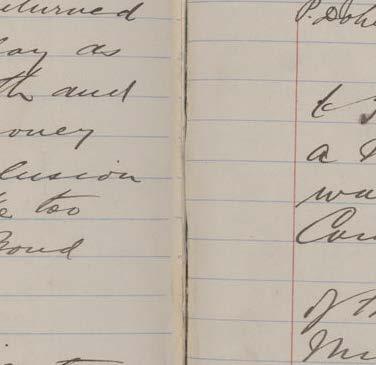 eturned
ay as
th and
oney
lusion
e too
Bond
P. Doh
& 
a
wa
Com
of th